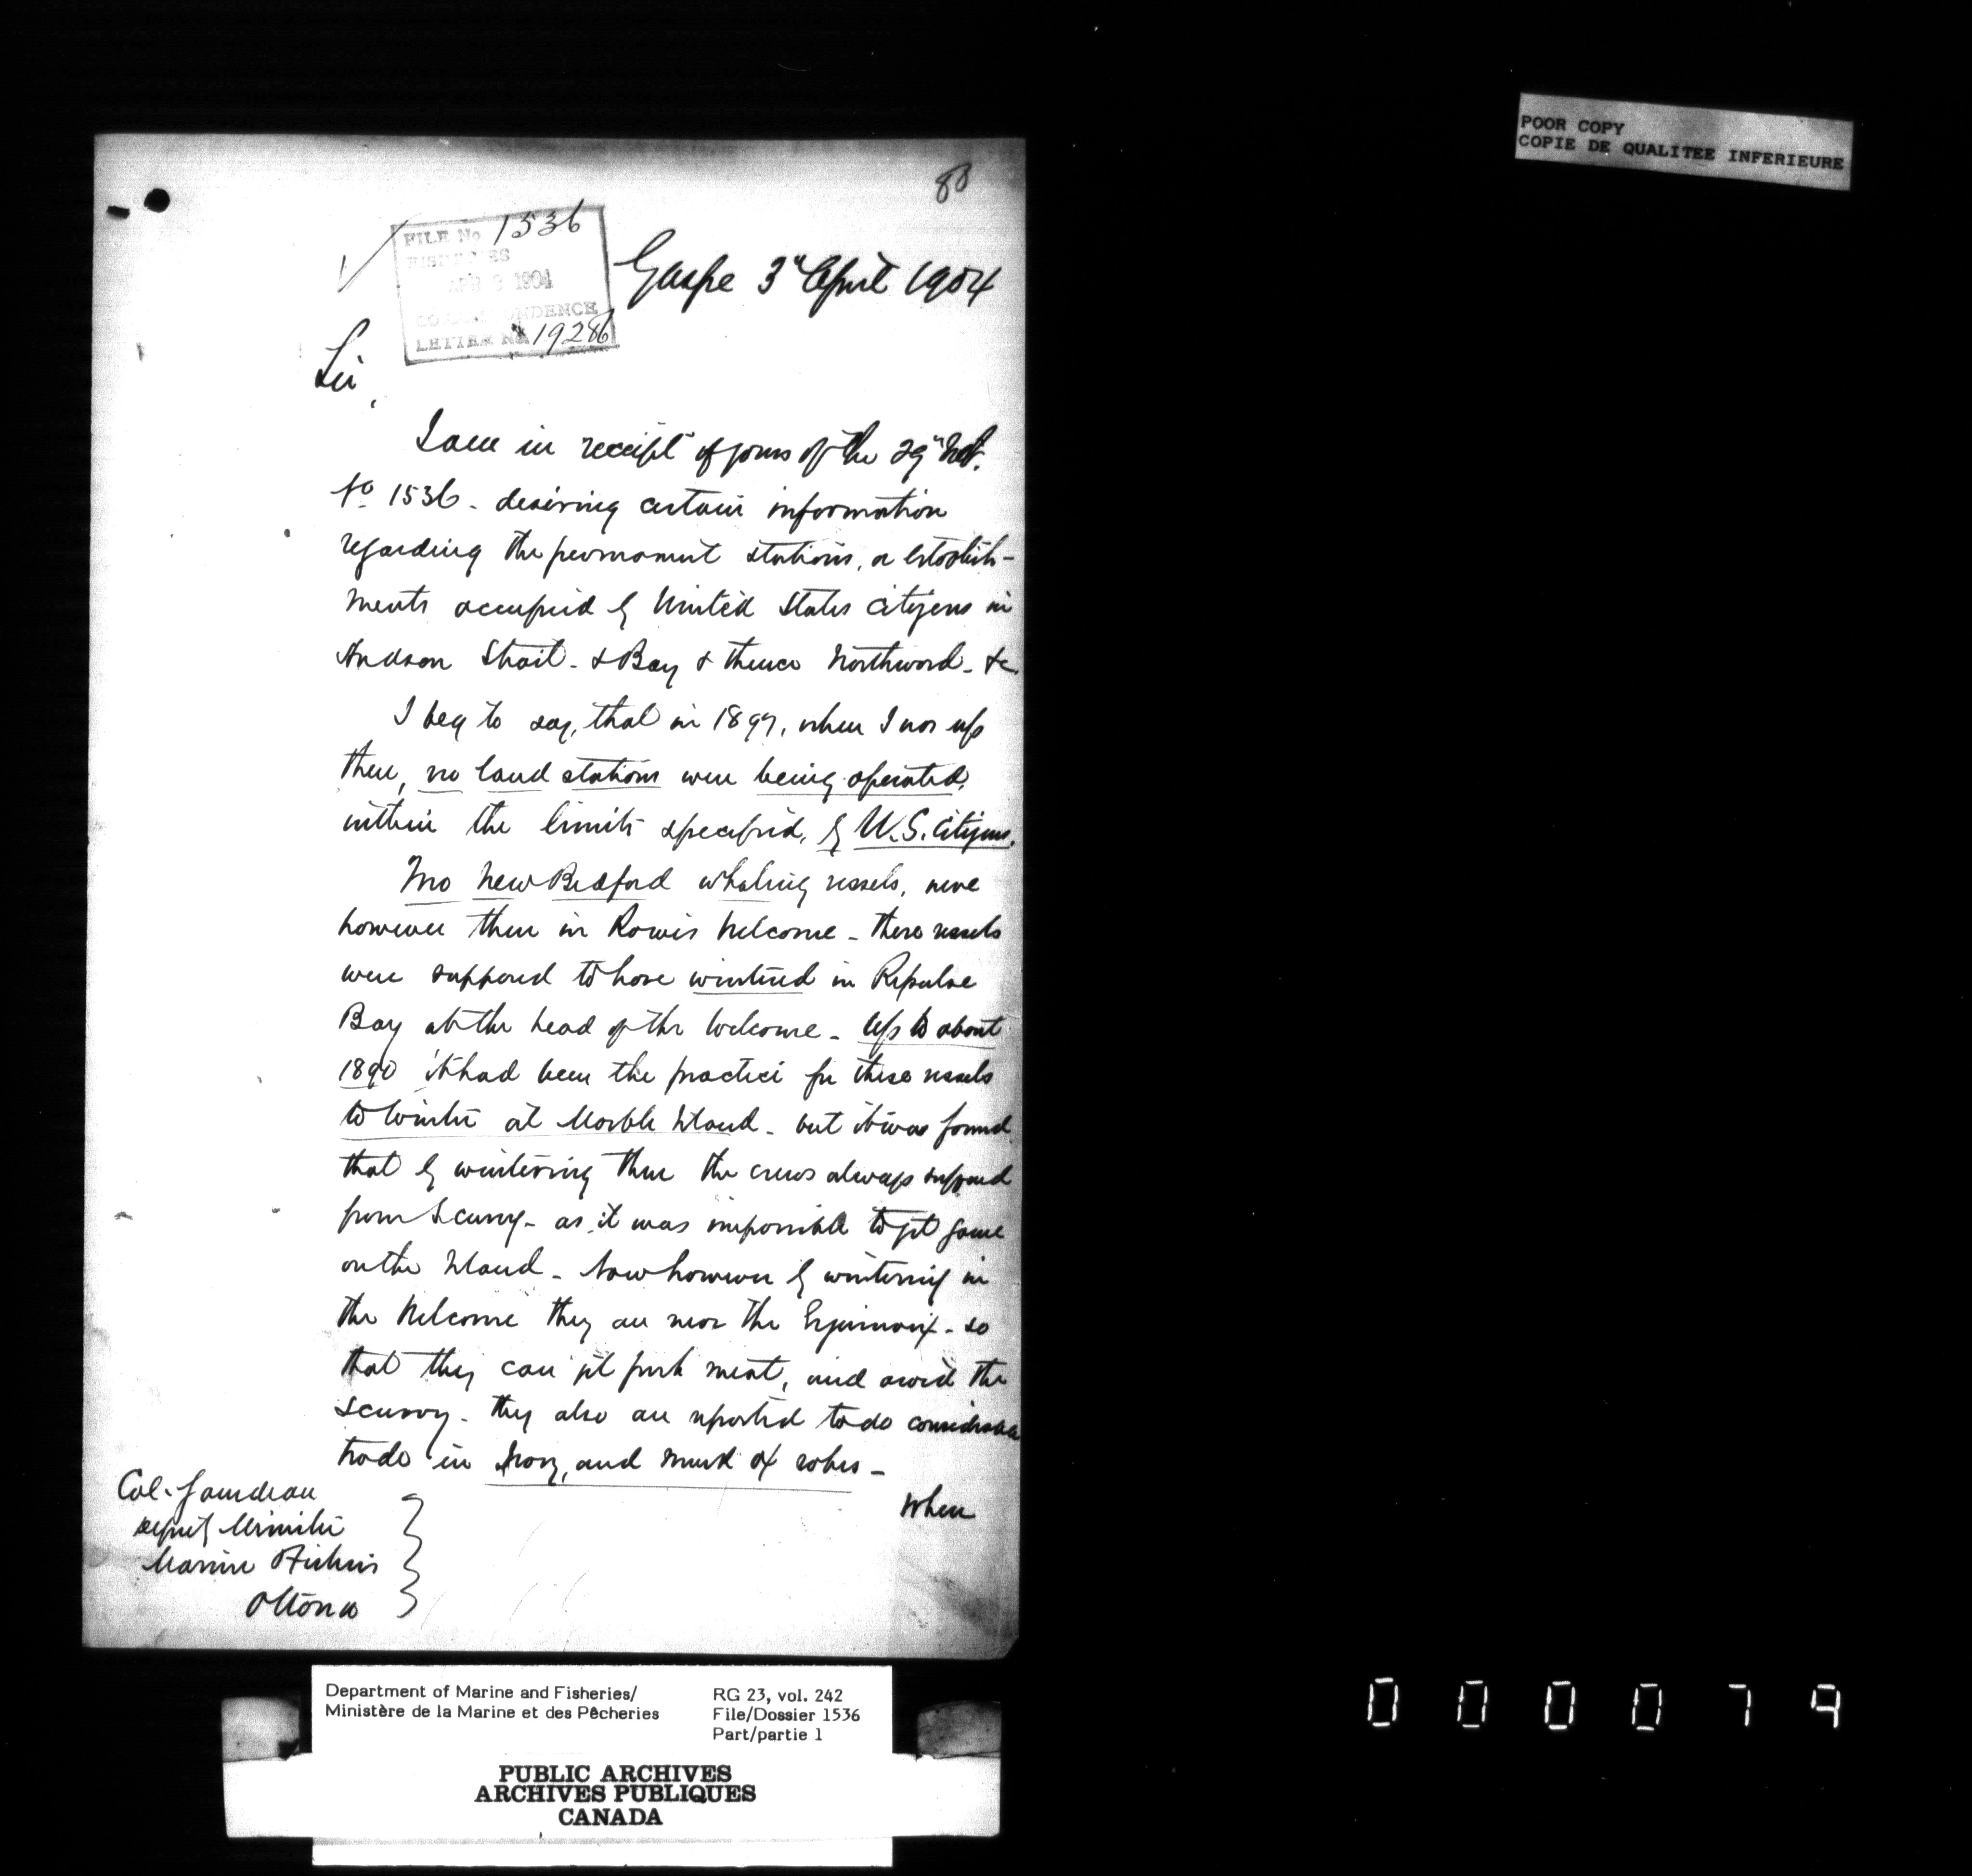 POOR COPY
COPIE DE QUALITEE INFERIEURE
80
FILE No 1536
FISHERIES
APR 9 1904
CORRESPONDENCE
LETTER No. 19286
Gaspe 3rd April 1904
Sir,
I am in receipt of yours of the 29th
No 1536 - desiring certain information
regarding the permanent stations, or establish-
ments occupied by United States citizens in
Hudson Strait - & Bay & thence Northward - &c.
I beg to say, that in 1897, when I was up
there, no land stations were being operated,
within the limits specified, by U.S. Citizens.
Two New Bedford whaling vessels, were
however then in Rowes Welcome - these vessels
were supposed to have wintered in Repulse
Bay at the head of the Welcome - Up to about
1890 it had been the practice for these vessels
to winter at Marble Island - but it was found
that by wintering there the crews always suffered
from Scurvy - as it was impossible to get game
on the Island - Now however by wintering in
the Welcome they are near the Esquimaux - so
that they can get fresh meat, and avoid the
scurvy - they also are reported to do considerable
trade in Ivory, and musk ox robes -
When
Col. Gourdeau
Deputy Minister
Marine & Fisheries
Ottawa
Department of Marine and Fisheries/
Ministère de la Marine et des Pêcheries
RG 23, vol. 242
File/Dossier 1536
Part/partie 1
PUBLIC ARCHIVES
ARCHIVES PUBLIQUES
CANADA
000079